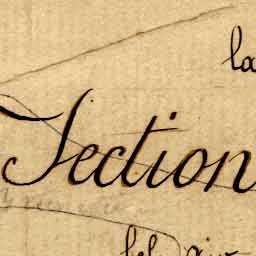 la
Section